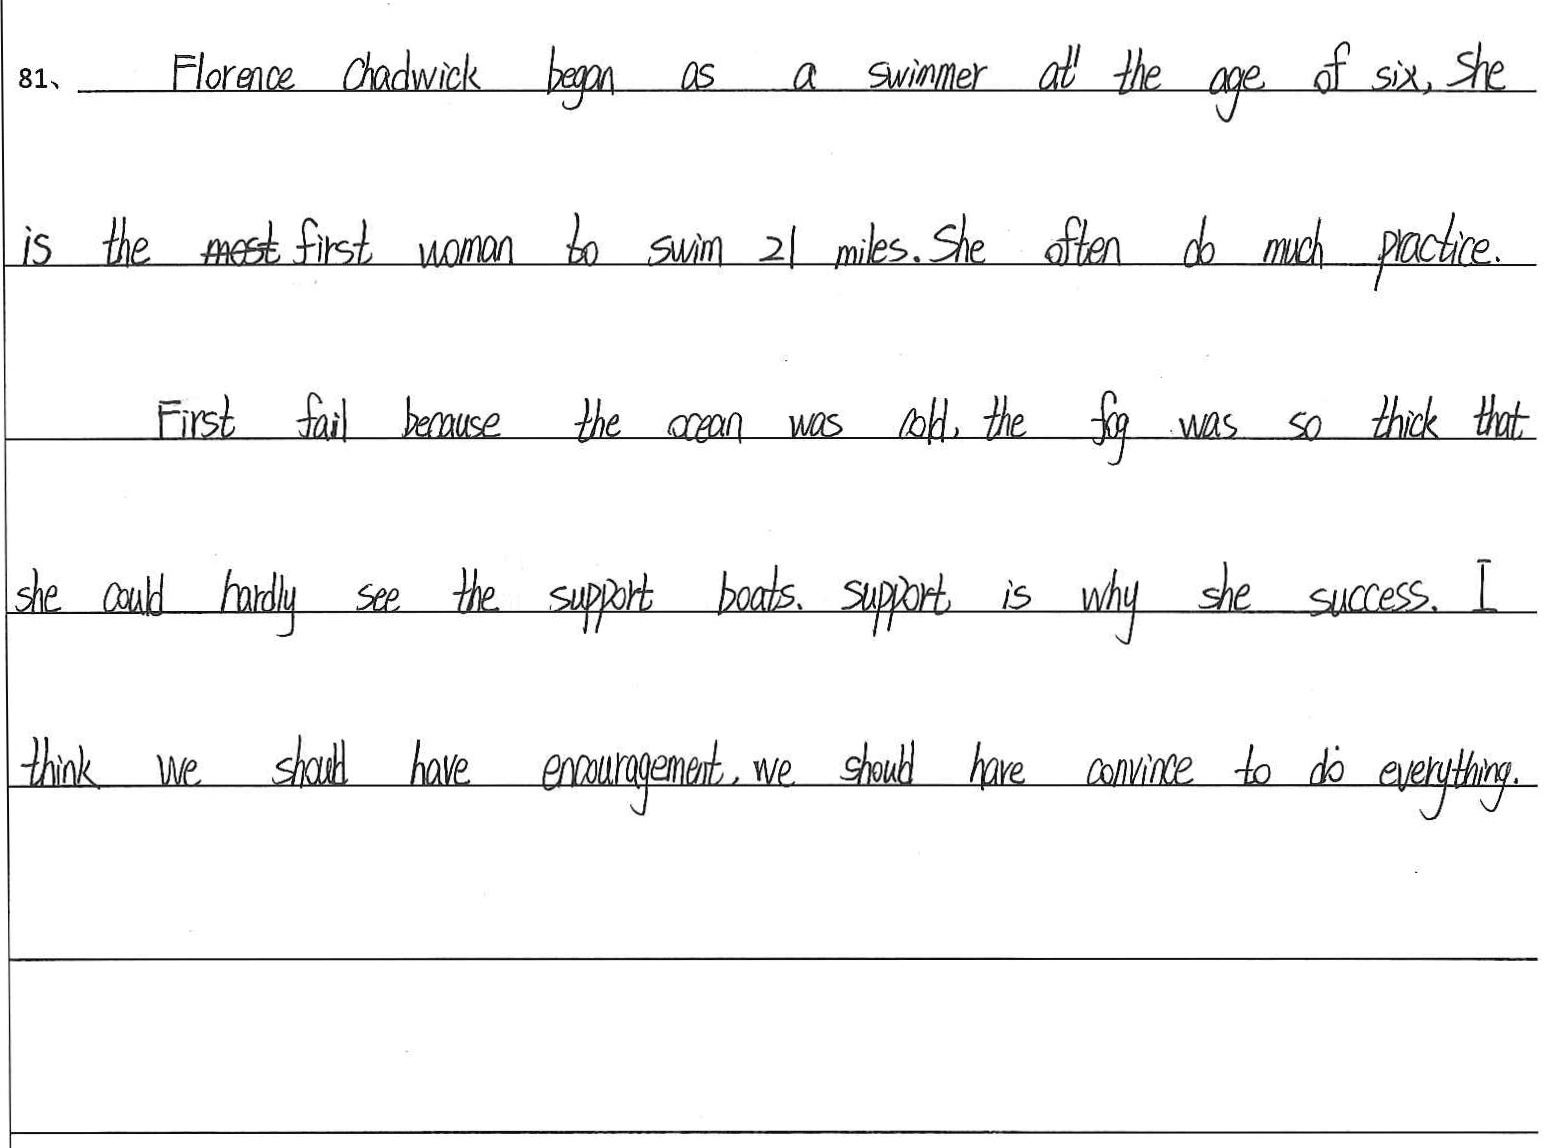 81、 Florence Chadwick began as a swimmer at the age of six, She
is the most first woman to swim 21 miles. She often do much practice.
First fail because the ocean was cold, the fog was so thick that
she could hardly see the support boats. support is why she success. I
think we should have encouragement, we should have convince to do everything.